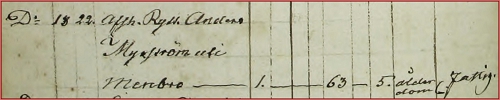 D:o 18 22. Afsk. Ryttn Anders
Myrström uti
Menebro — 1. — 63 — 5. ålder
dom (fattig.